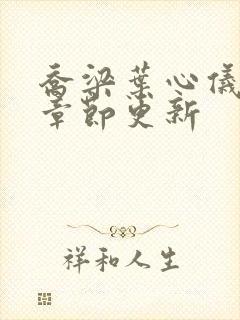 乔梁葉心儀
章節更新
祥和人生